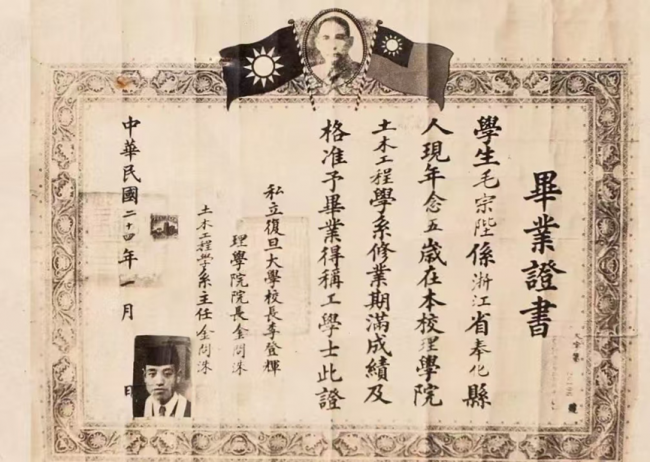 畢業證書
學生毛宗陛係浙江省奉化縣
人現年念五歲在本校理學院
土木工程學系修業期滿成績及
格准予畢業得稱工學士此證
私立復旦大學校長李登輝
理學院院長金問洙
土木工程學系主任金問洙
中華民國二十四年一月 日